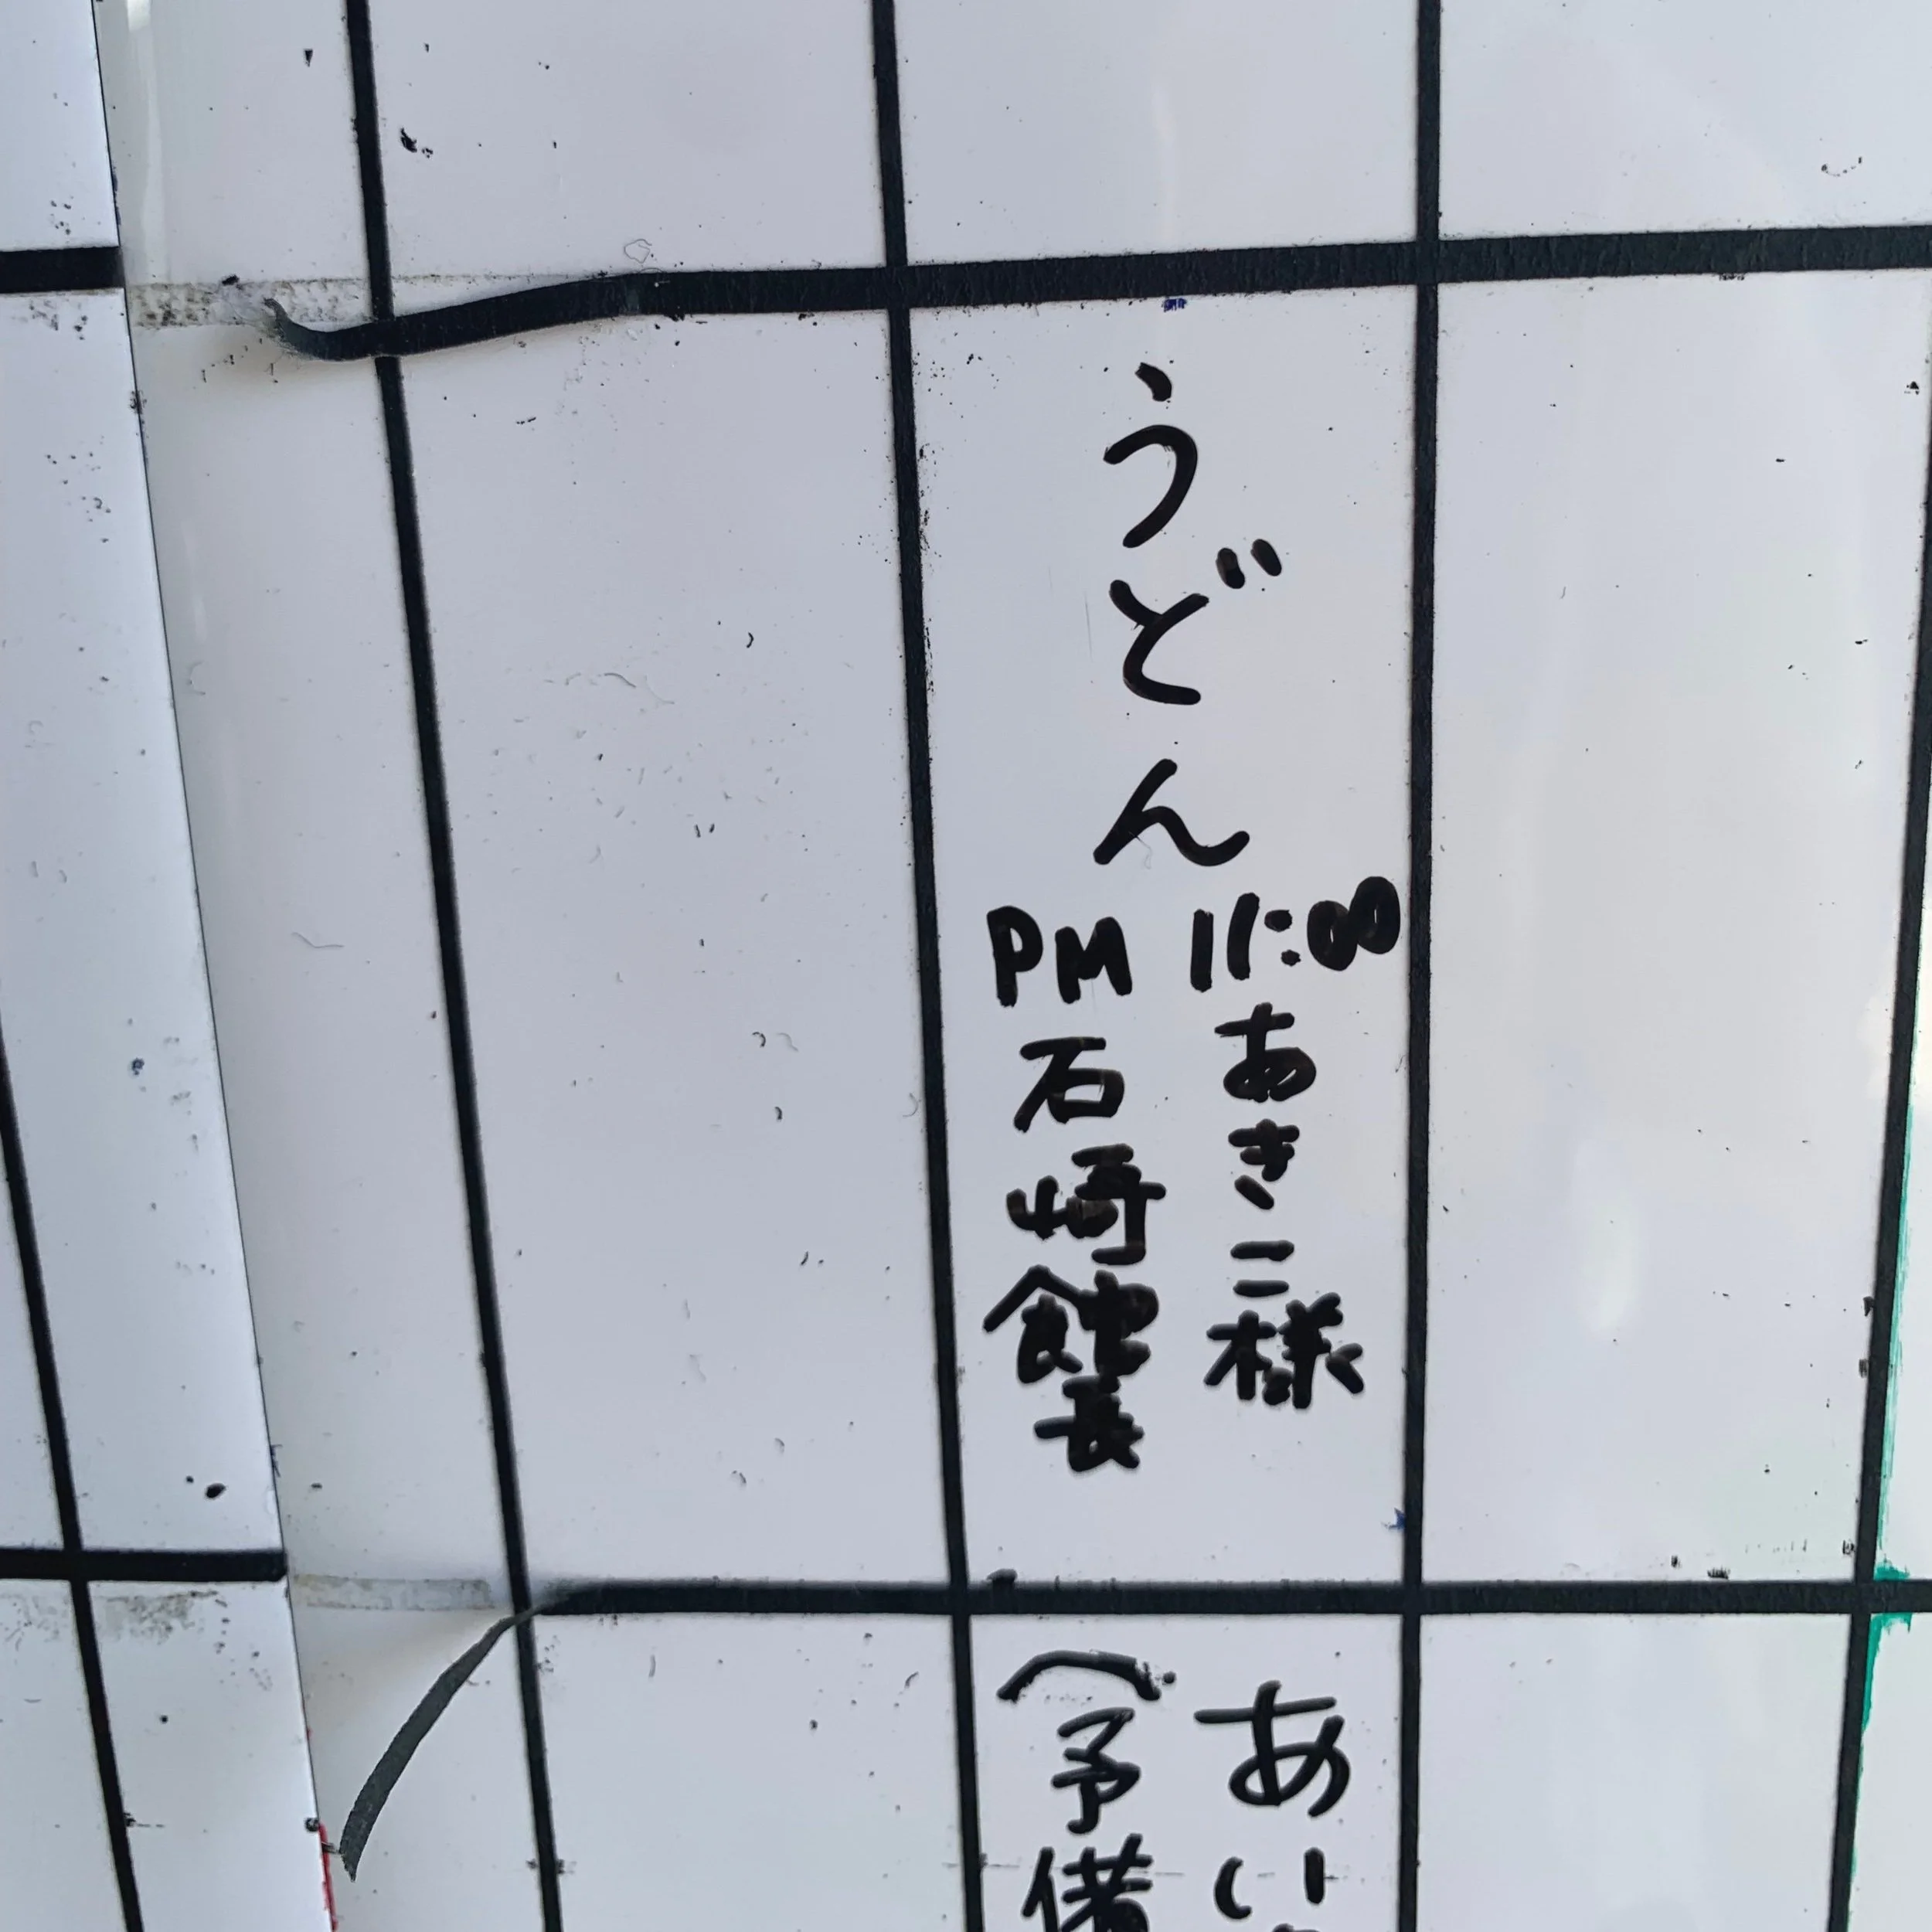 うどん
11:00あきこ様
PM石崎館長
あい
(予備